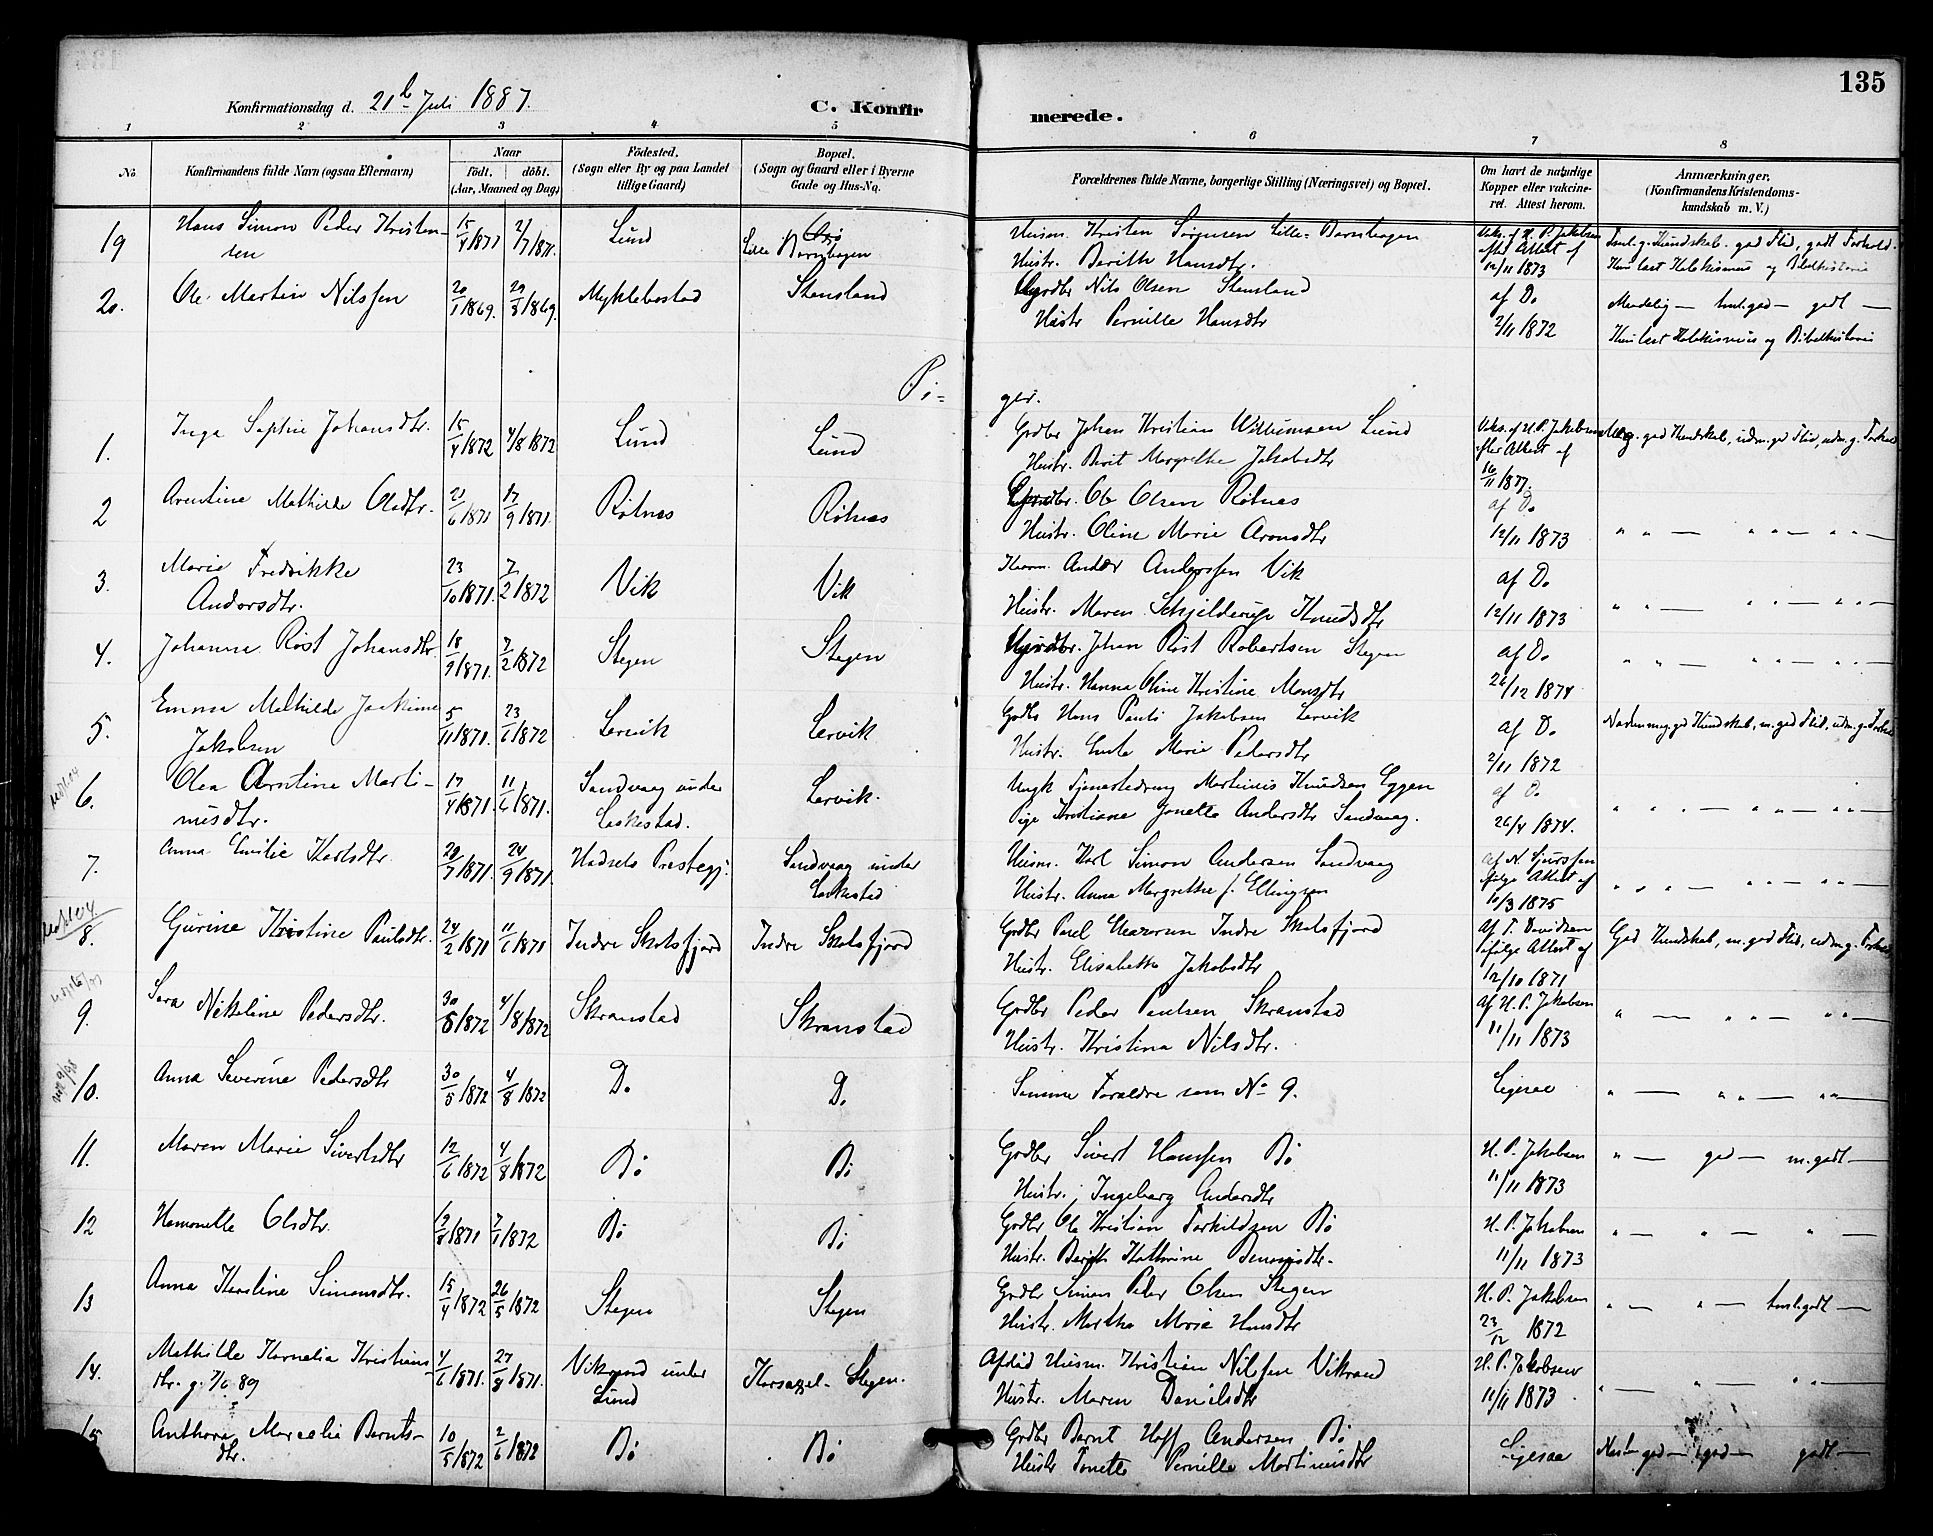 135
Konfirmationsdag d. 21de Juli 1887.
C. Konfir
merede.
1 2 3 4 5 6 7 8
No
Konfirmandens fulde Navn (ogsaa Efternavn)
Naar
födt. döbt.
(Aar, Maaned og Dag)
Födested.
(Sogn eller By og paa Landet
tillige Gaard)
Bopæl.
(Sogn og Gaard eller i Byerne
Gade og Hus-No.
Forældrenes fulde Navne, borgerlige Stilling (Næringsvei) og Bopæl.
Om havt de naturlige
Kopper eller vakcine-
ret. Attest herom.
Anmærkninger.
(Konfirmandens Kristendoms-
kundskab m. V.)
19 Hans Simon Peder Kristen-
sen 15/4 1871 2/7 1871. Lund Lille Barnhagen
Husm. Kristen Sörensen Lille-Barnhagen
Hustr. Berith Hansdtr.
Vaks. af H. P. Jakobsen
efter Attest af
12/11 1873
Teml. g. Kundskab. god Flid, godt Forhold.
Kun læst Katekismus og Bibelhistorie
20. Ole Martin Nilssen 20/1 1869. 29/3 1869. Myklebostad Stensland
Grdbr Nils Olsen Stensland
Hustr Pernille Hansdtr
af Do
2/11 1872
Maadelig — teml. god — godt —
Kun læst Katekismus og Bibelhistorie
Pi=
ger.
1. Inga Sophie Johansdtr. 15/4 1872 4/8 1872 Lund Lund
Grdbr Johan Kristian Willumsen Lund
Hustr. Berit Margrethe Jakobsdtr
Vaks. af H. P. Jakobsen
efter Attest af
16/11 1877.
Meg. god Kundskab, udm. god Flid, udm. g. Forhold
2 Arentine Mathilde Olsdtr. 21/6 1871 17/9 1871. Rötnes Rötnes
Grdbr. Ole Olsen Rötnes
Hustr. Oline Marie Aronsdtr
af Do
12/11 1873
" " — " " — " " —
3. Marie Fredrikke
Andersdtr. 23/10 1871. 7/2 1872 Vik Vik
Anders Anderssen Vik
Hustr. Maren Schjelderup Knudsdtr
af Do
12/11 1873
" " — " " — " " —
4. Johanna Röst Johansdtr. 18/9 1871. 7/2 1872 Stegen Stegen
Grdbr. Johan Röst Robertsen Stegen
Hustr. Hanna Oline Kristine Monsdtr
af Do
26/12 1874
" " — " " — " " —
5. Emma Mathilde Joakime
Jakobsen 5/11 1871. 23/6 1872 Lervik Lervik
Grdbr Hans Pauli Jakobsen Lervik
Hustr. Marie Pedersdtr
af Do
2/11 1872
Næsten meg. god Kundskab, m. god Flid, udm. g. Forhold
6. Olea Arntine Marti-
nusdtr. 17/4 1871. 11/6 1871. Sandvaag under
Laskestad. Lervik.
Ungk Tjenestedreng Martinus Knudsen Eggen
Pige Kristiane Jonette Andersdtr Sandvaag.
af Do
26/4 1874.
" " " — " " — " " —
7. Anna Emilie Karlsdtr. 29/7 1871. 24/9 1871. Hadsels Prestegj. Sandvaag under
Laskestad
Husm. Karl Simon Andersen Sandvaag
Hustr. Anna Margrethe f. Ellingsen
af N. Sjurssen
ifölge Attest af
10/3 1875
" " " — " " — " " —
8. Gurine Kristine Paulsdtr. 24/2 1871 11/6 1871 Indre Skotsfjord Indre Skotsfjord
Grdbr Paul Indre Skotsfjord
Hustr. Elisabeth Jakobsdtr
Af T. Davidsen
ifölge Attest af
12/10 1871
God Kundskab, m. god Flid, udm. g. Forhold
9. Sara Nikoline Pedersdtr. 30/5 1872 4/8 1872 Skranstad Skranstad
Grdbr Peder Paulsen Skranstad
Hustr. Kristina Nilsdtr.
Af H. P. Jakobsen
11/11 1873
" — " " — " " —
10. Anna Severine Pedersdtr 30/5 1872 4/8 1872 Do Do
Samme Forældre som No 9.
Ligesaa
" — " " — " " —
11. Maren Marie Sivertsdtr 12/6 1872 4/8 1872 Bö Bö
Grdbr Sivert Hanssen Bö
Hustr. Ingeborg Andersdtr
H. P. Jakobsen
11/11 1873
" — god — m. godt —
12 Hemonette Olsdtr. 1871 7/1 1872 Bö Bö
Grdbr Ole Kristian Torkildsen Bö
Hustr. Berith Kathrine
H. P. Jakobsen
11/11 1873
" — " — " —
13 Anna Karoline Simonsdtr. 15/4 1872 26/5 1872 Stegen Stegen
Grdbr Simon Peder Olsen Stegen
Hustr. Martha Marie Hansdtr
H. P. Jakobsen
23/12 1872
" — " — teml. godt —
14. Mathilde Kornelia Kristians-
dtr. g. 7/6 89 4/6 1871. 27/8 1871. Vikrand under
Lund Stegen.
Afdöd Husm. Kristian Nilssen Vikrand
Hustr. Maren Danielsdtr
H. P. Jakobsen
11/11 1873
" — " — " " —
15 Anthora Marcelie Bernts-
dtr. 10/5 1872 2/6 1872 Bö Bö
Grdbr Bernt Hoff Andersen Bö
Hustr Tonette Pernille Martinusdtr
Ligesaa
Næsten god — god — godt —